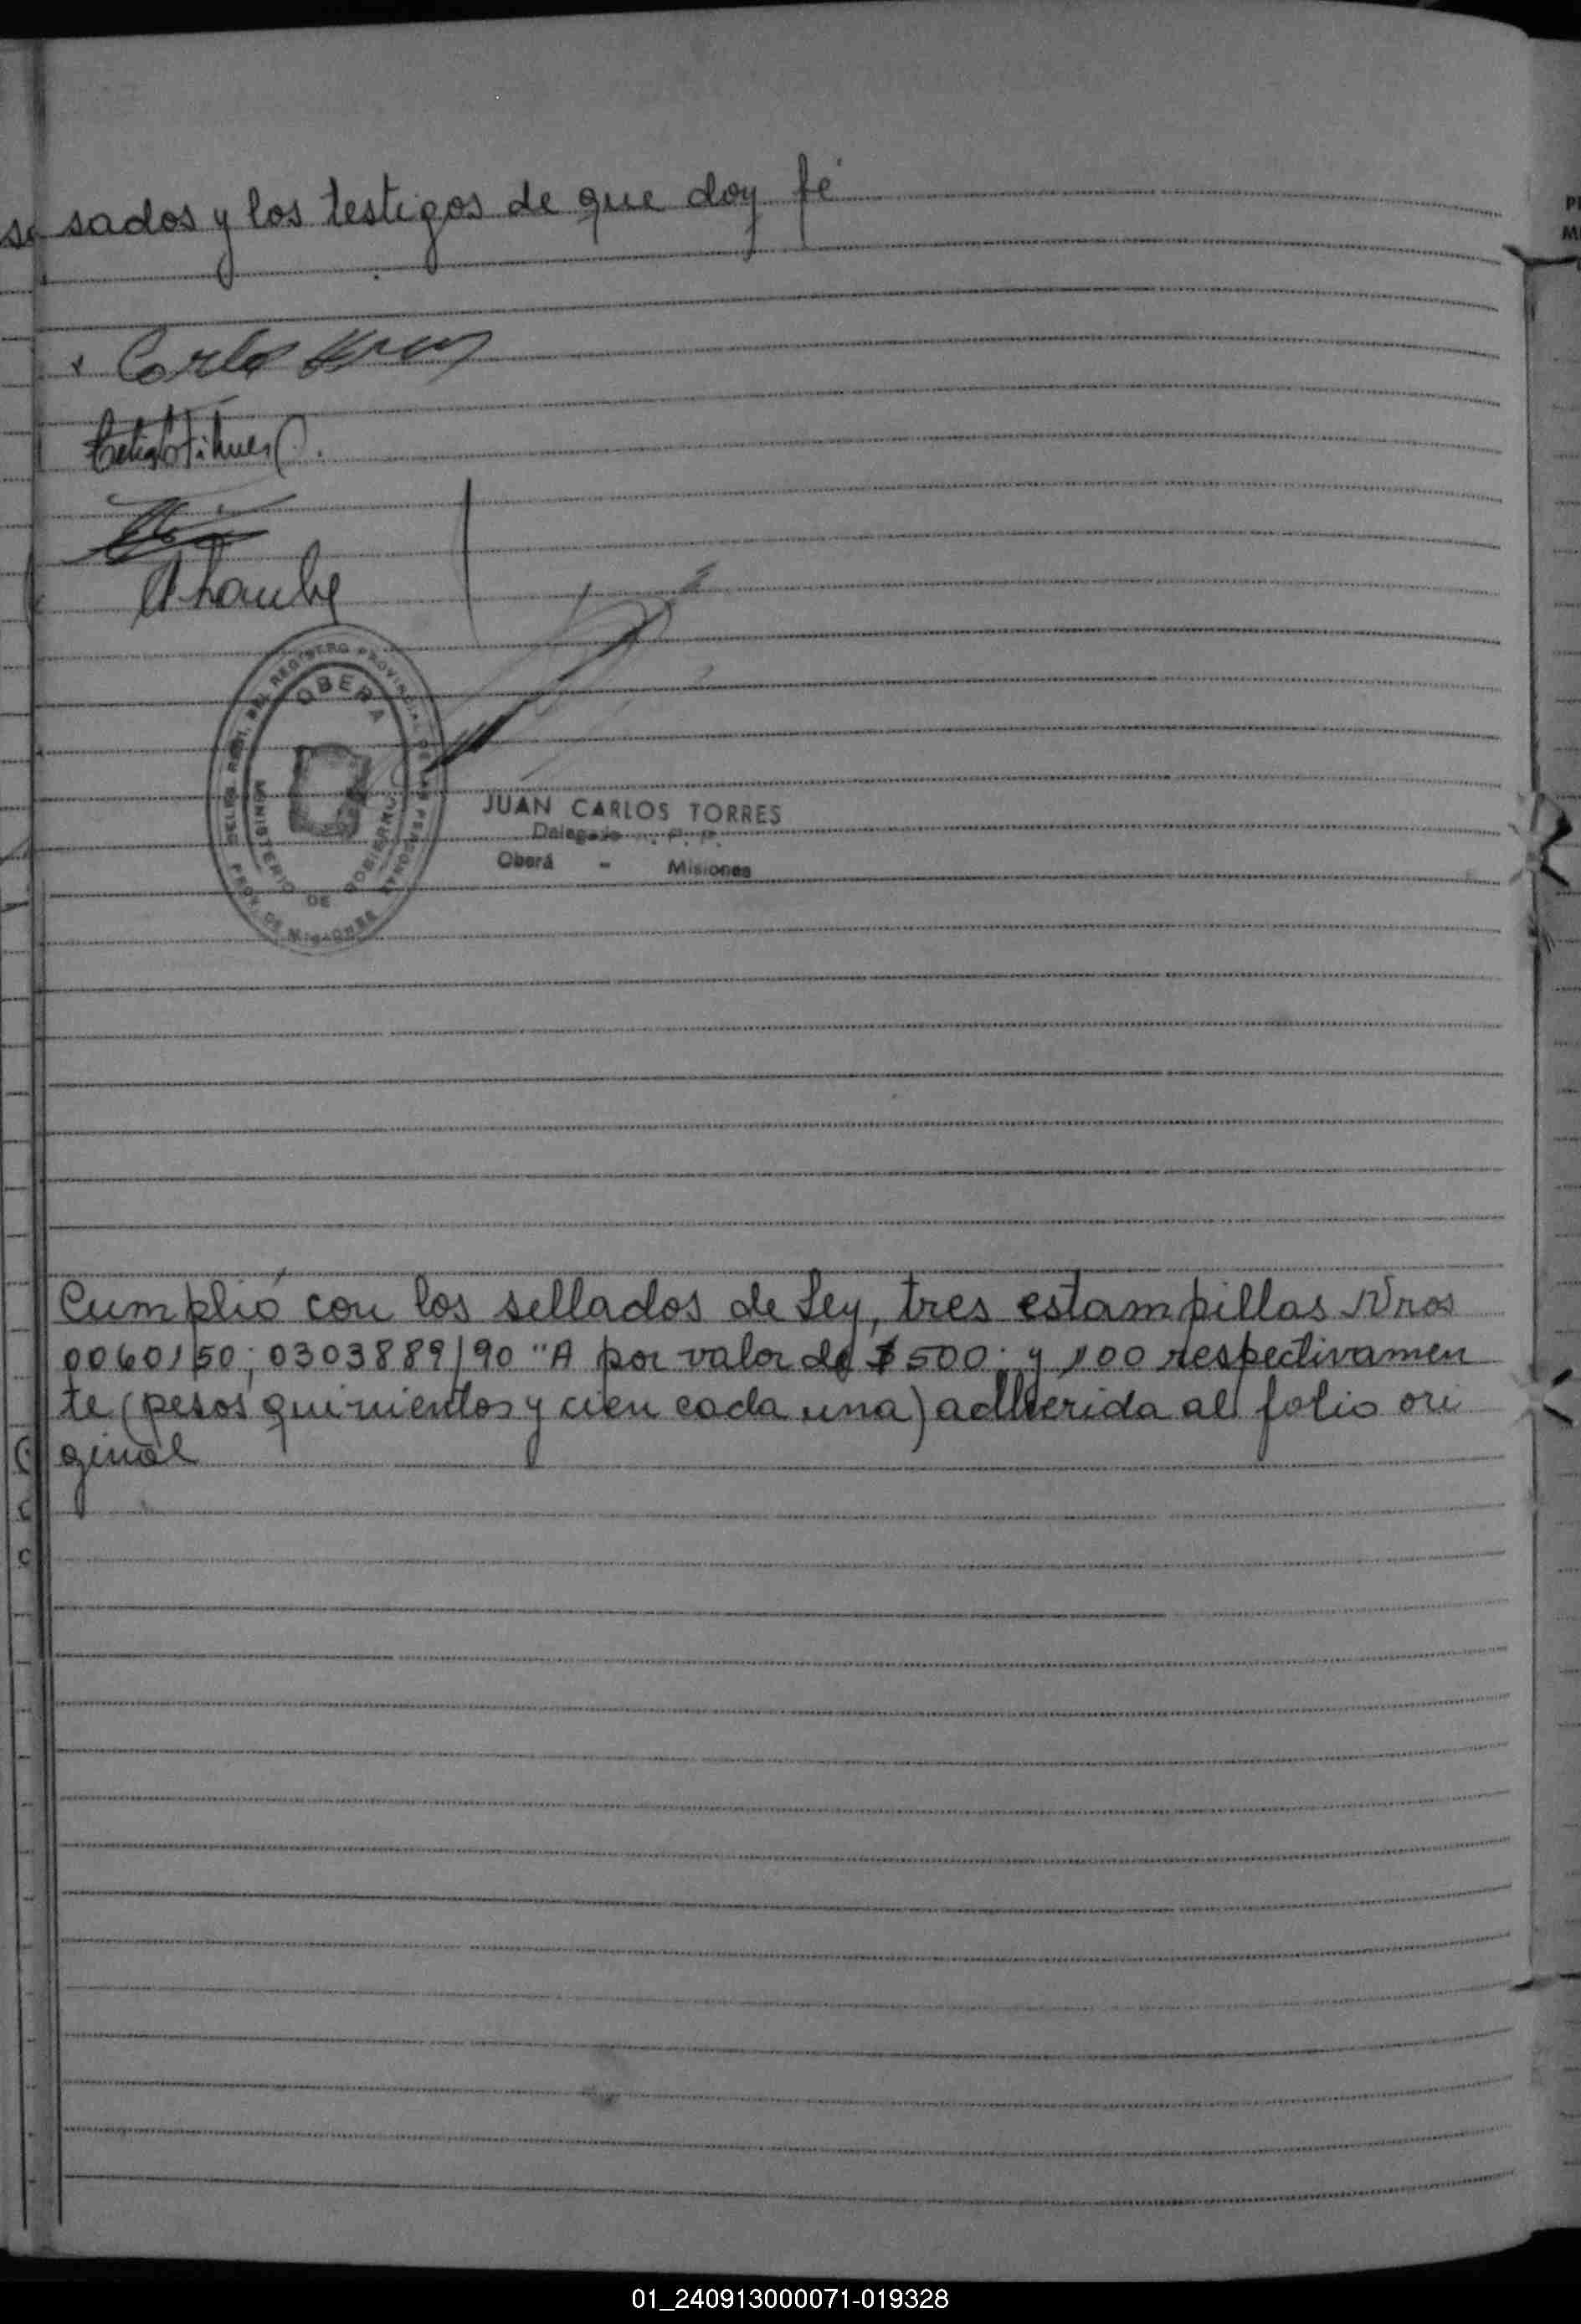 sados y los testigos de que doy fé
Carlos
OBERA
MINISTERIO DE GOBIERNO
PROV. DE MISIONES
JUAN CARLOS TORRES
Delegado R. P. P.
Oberá - Misiones
Cumplió con los sellados de Ley, tres estampillas Nros
0060150; 0303889/90 "A por valor de $ 500. y 100 respectivamen
te (pesos quinientos y cien cada una) adherida al folio ori
ginal
01_240913000071-019328